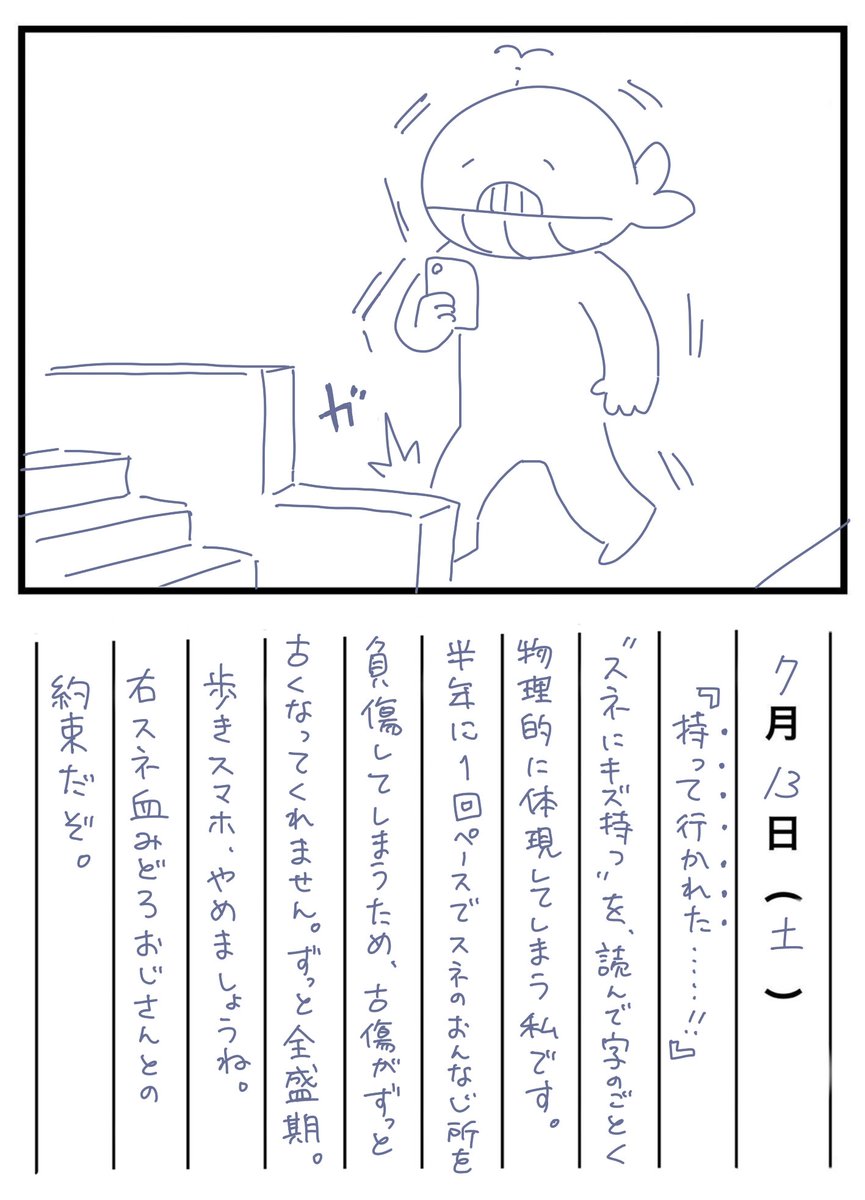 ガ
7月13日(土)
『持って行かれた……!!』
"スネにキズ持つ"を、読んで字のごとく
物理的に体現してしまう私です。
半年に1回ペースでスネのおんなじ所を
負傷してしまうため、古傷がずっと
古くなってくれません。ずっと全盛期。
歩きスマホ、やめましょうね。
右スネ血みどろおじさんとの
約束だぞ。